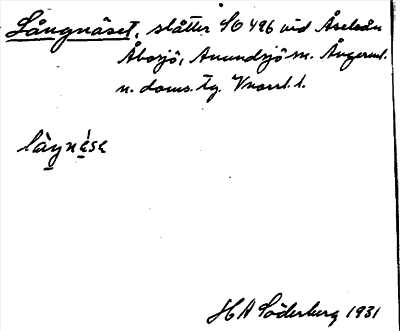 Långnäset, slåtter SO 496 vid Åseleån
Åbosjö, Anundsjö sn. Ångerml.
n. doms. tg. Vnorrl. l.
làŋnése
H A Söderberg 1931